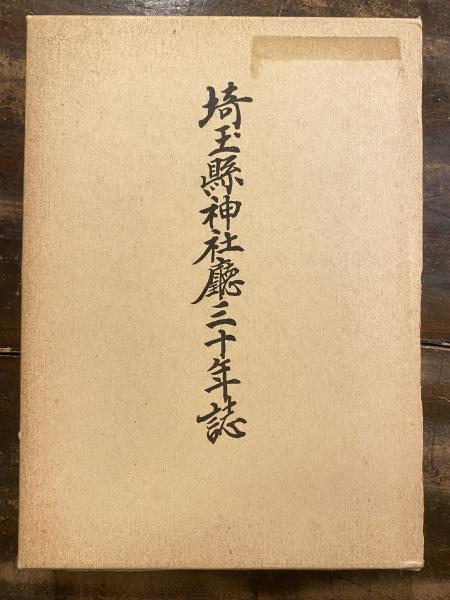 埼玉縣神社廳三十年誌